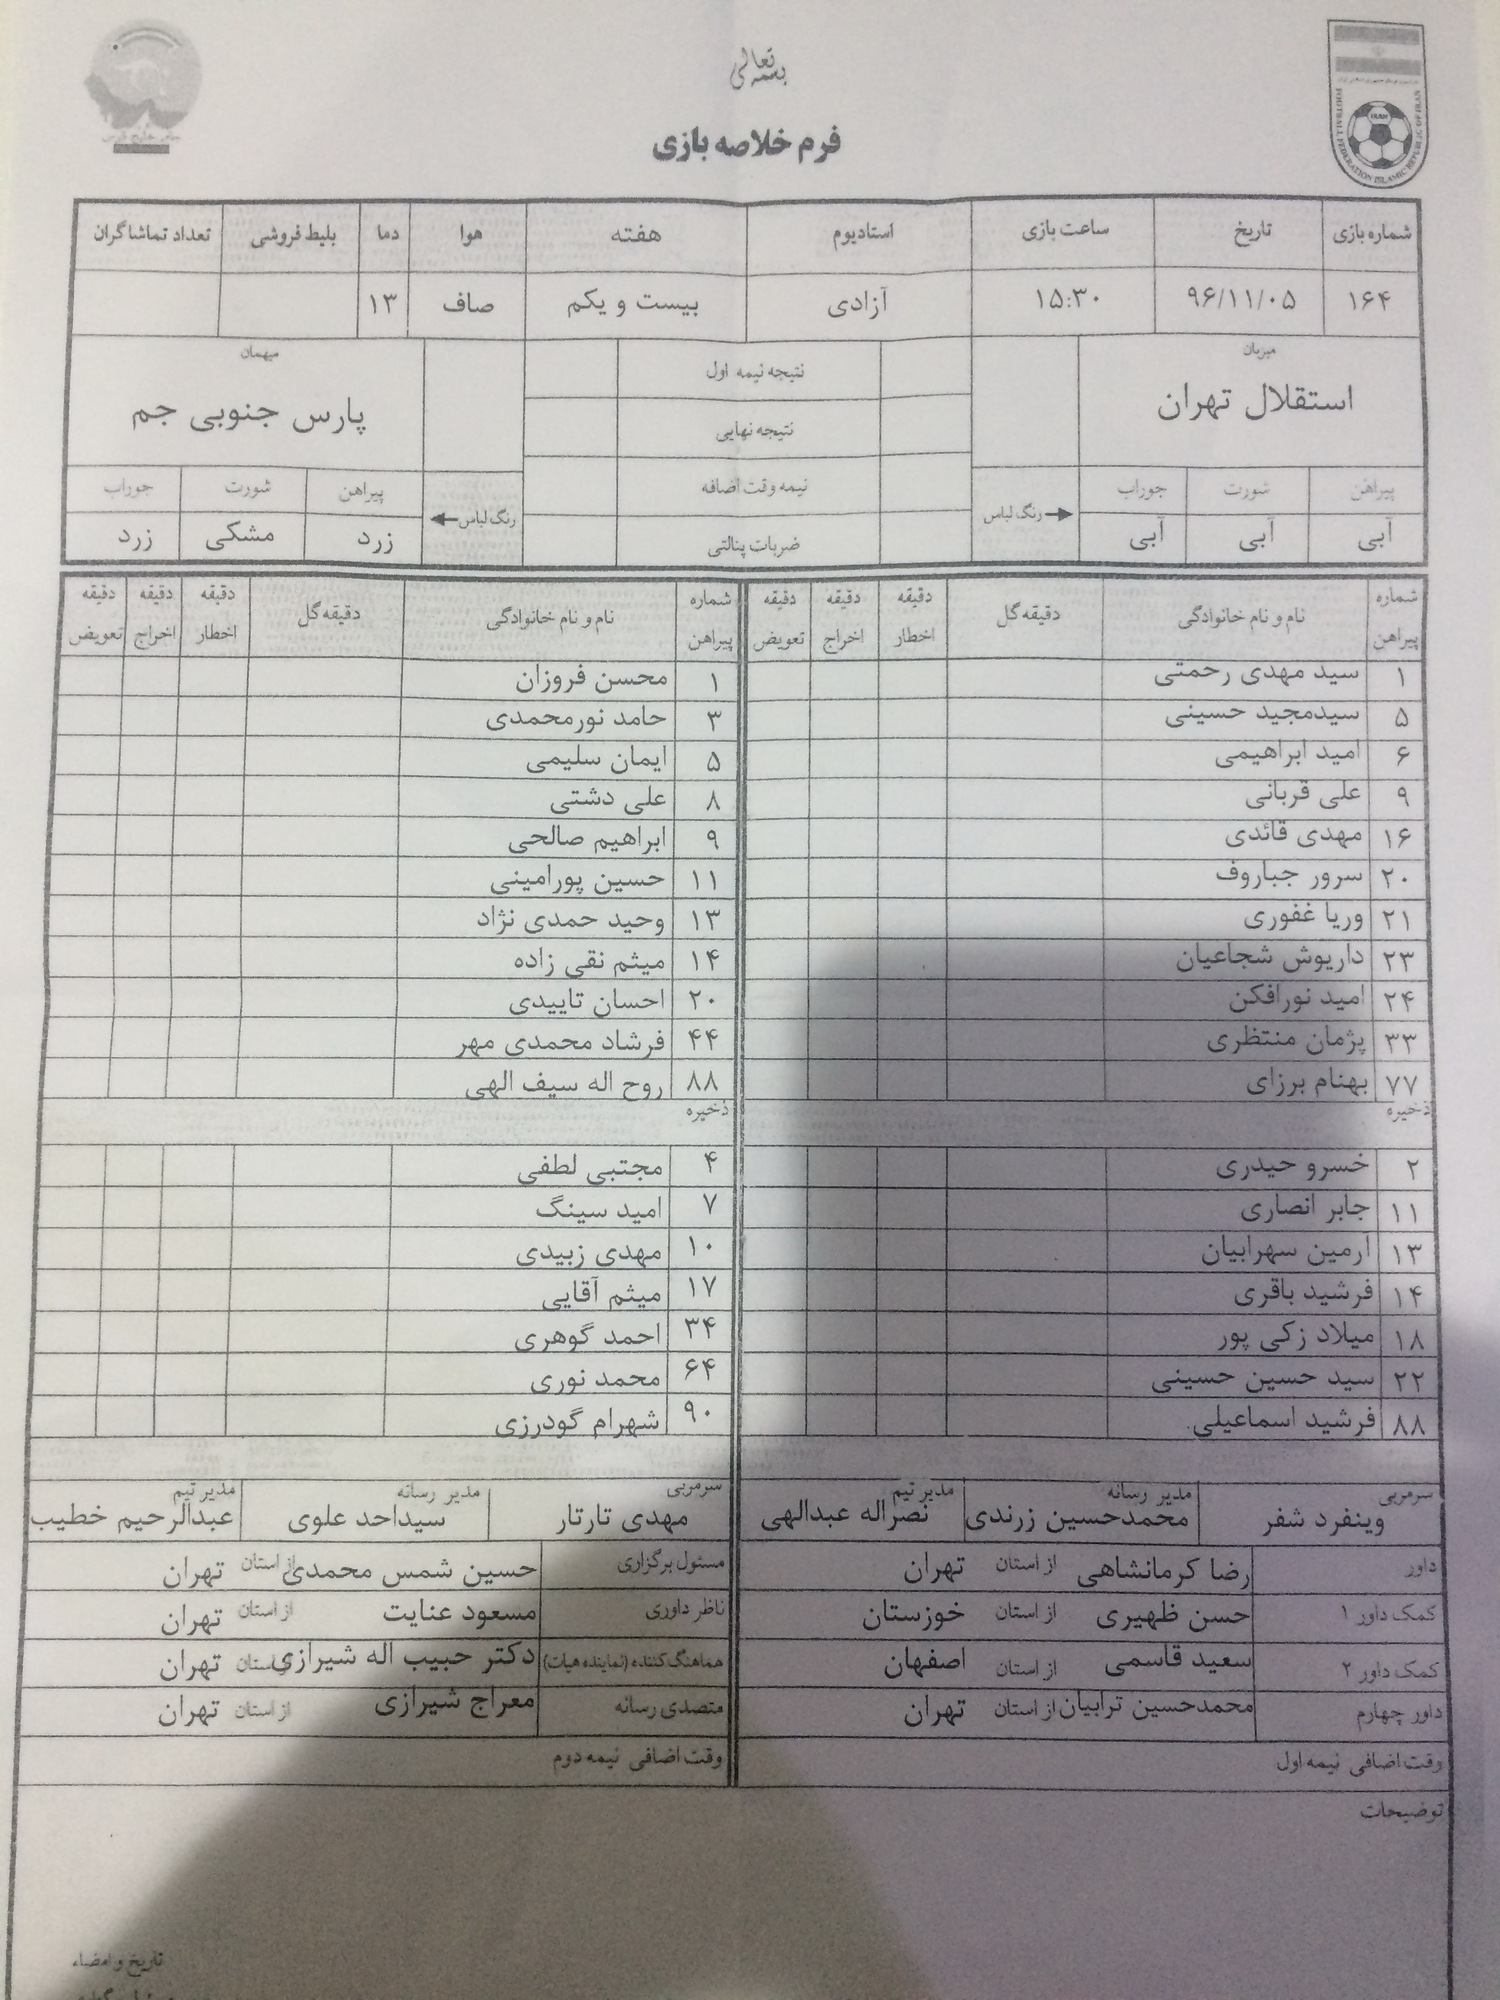 بسمه تعالی
FOOTBALL FEDERATION ISLAMIC REPUBLIC OF IRAN
فرم خلاصه بازی
شماره بازی تاریخ ساعت بازی استادیوم هفته هوا دما بلیط فروشی تعداد تماشاگران
۱۶۴ ۹۶/۱۱/۰۵ ۱۵:۳۰ آزادی بیست و یکم صاف ۱۳
میزبان نتیجه نیمه اول میهمان
استقلال تهران نتیجه نهایی پارس جنوبی جم
پیراهن شورت جوراب رنگ لباس نیمه وقت اضافه رنگ لباس پیراهن شورت جوراب
آبی آبی آبی ضربات پنالتی زرد مشکی زرد
شماره پیراهن نام و نام خانوادگی دقیقه گل دقیقه اخطار دقیقه اخراج دقیقه تعویض شماره پیراهن نام و نام خانوادگی دقیقه گل دقیقه اخطار دقیقه اخراج دقیقه تعویض
۱ سید مهدی رحمتی ۱ محسن فروزان
۵ سیدمجید حسینی ۳ حامد نورمحمدی
۶ امید ابراهیمی ۵ ایمان سلیمی
۹ علی قربانی ۸ علی دشتی
۱۶ مهدی قائدی ۹ ابراهیم صالحی
۲۰ سرور جباروف ۱۱ حسین پورامینی
۲۱ وریا غفوری ۱۳ وحید حمدی نژاد
۲۳ داریوش شجاعیان ۱۴ میثم نقی زاده
۲۴ امید نورافکن ۲۰ احسان تاییدی
۳۳ پژمان منتظری ۴۴ فرشاد محمدی مهر
۷۷ بهنام برزای ۸۸ روح اله سیف الهی
ذخیره ذخیره
۲ خسرو حیدری ۴ مجتبی لطفی
۱۱ جابر انصاری ۷ امید سینگ
۱۳ آرمین سهرابیان ۱۰ مهدی زبیدی
۱۴ فرشید باقری ۱۷ میثم آقایی
۱۸ میلاد زکی پور ۳۴ احمد گوهری
۲۲ سید حسین حسینی ۶۴ محمد نوری
۸۸ فرشید اسماعیلی ۹۰ شهرام گودرزی
سرمربی مدیر رسانه مدیر تیم سرمربی مدیر رسانه مدیر تیم
وینفرد شفر محمدحسین زرندی نصراله عبدالهی مهدی تارتار سیداحد علوی عبدالرحیم خطیب
داور رضا کرمانشاهی از استان تهران مسئول برگزاری حسین شمس محمدی از استان تهران
کمک داور ۱ حسن ظهیری از استان خوزستان ناظر داوری مسعود عنایت از استان تهران
کمک داور ۲ سعید قاسمی از استان اصفهان هماهنگ کننده (نماینده هیات) دکتر حبیب اله شیرازی از استان تهران
داور چهارم محمدحسین ترابیان از استان تهران متصدی رسانه معراج شیرازی از استان تهران
وقت اضافی نیمه اول وقت اضافی نیمه دوم
توضیحات
تاریخ و امضاء